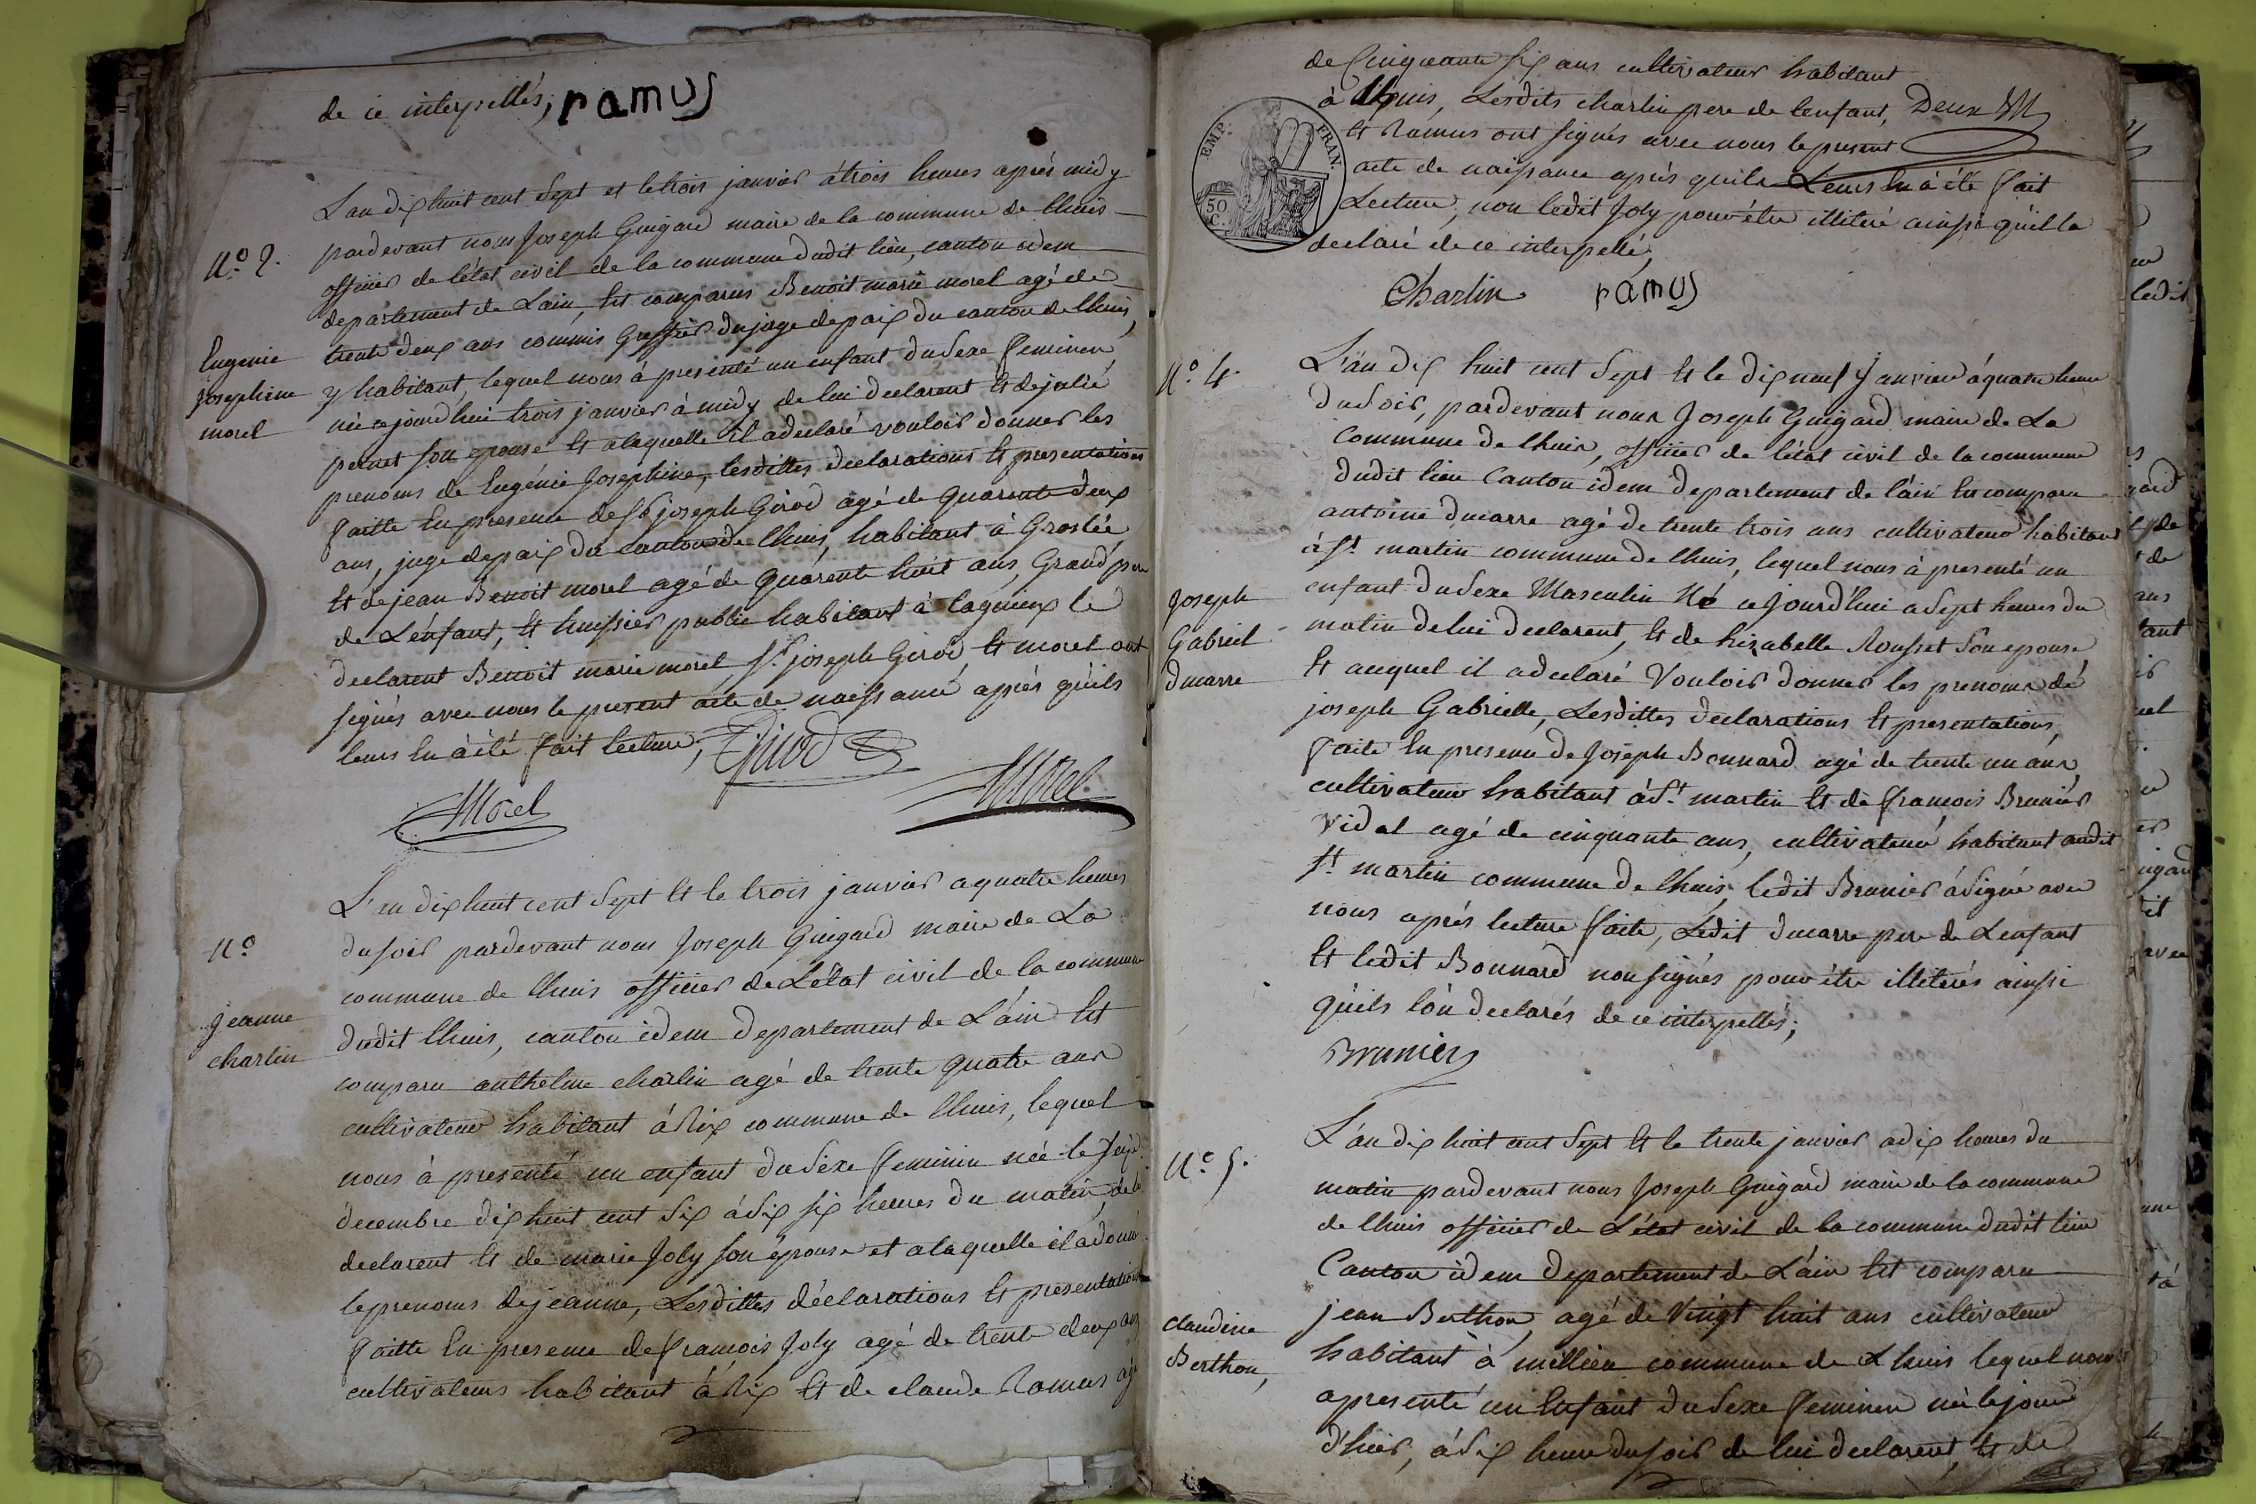 de ce interpellés; ramus
N.o 2.
Eugenie
josephine
morel
L'an dix huit cent Sept et le trois janvier á trois heures aprés midy
pardevant nous Joseph Guigard maire de la commune de lhuis
officier de l'état civil de la commune dudit lieu, canton idem
departement de L'ain, Est comparus Benoit marie morel agé de
trente deux ans commis Greffier du juge de paix du canton de lhuis,
y habitant, lequel nous à presenté un enfant du Sexe feminin,
née ce jourd'hui trois janvier à midy de lui declarant Et de julie
son epouse Et a laquelle il a declaré vouloir donner les
prenoms de Eugénie Josephine, lesdittes declarations Et presentations
faitte En presence de joseph Girod agé de quarante deux
ans, juge de paix du canton de lhuis, habitant à Groslée
Et de jean Benoit morel agé de quarente huit ans, Grand pere
de L'enfant, Et huissier public habitant à lagnieux le
declarent Benoit marie morel, joseph Girod, Et morel ont
signés avec nous le present acte de naissance aprés qu'ils
leurs En à été fait lecture, Girod
Morel
Morel
N.o
jeanne
charlin
L'an dix huit cent Sept Et le trois janvier a quatre heures
du soir pardevant nous Joseph Guigard maire de La
commune de lhuis officier de L'état civil de la commune
dudit lhuis, canton idem departement de L'ain Est
comparu anthelme charlin agé de trente quatre ans
cultivateur habitant á Rix commune de lhuis, lequel
nous à presenté un enfant du Sexe feminin née le
decembre dix huit cent Six à Six heures du matin, de lui
declarent Et de marie Joly son épouse et a laquelle il a donné
le prenoms de jeanne, Lesdittes déclarations Et presentations
faitte En presence de francois Joly agé de trente deux ans
cultivateurs habitant à Rix Et de claude Ramus agé
de Cinquante six ans cultivateur habitant
à lhuis, Lesdits charlin pere de l'enfant, Deux
Et Ramus ont signés avec nous le present
acte de naissance aprés quils Leurs En à été fait
Lecture, non ledit Joly pour étre illitéré ainsi qu'il la
declaré de ce interpellé,
EMP. FRAN.
50 C.
Charlin ramus
N.o 4.
Joseph
Gabriel
ducarre
L'an dix huit cent Sept Et le dix neuf Janvier á quatre heure
du Soir, pardevant nous Joseph Guigard maire de La
Commune de lhuis, officier de l'état civil de la commune
dudit lieu Canton idem departement de l'ain Est comparu
antoine ducarre agé de trente trois ans cultivateur habitant
à St martin commune de lhuis, lequel nous à presenté un
enfant du Sexe Masculin Né ce jourd'hui a Sept heures du
matin de lui declarent, Et de Lizabelle Rousset Son epouse
Et auquel il a declaré Vouloir donner les prenoms dé
joseph Gabrielle, Lesdittes declarations Et presentations,
faite En presence de Joseph Bonnard agé de trente un ans
cultivateur habitant á St martin Et de francois Brunier
Vidal agé de cinquante ans, cultivateur habitant audit
St martin commune de lhuis, ledit Brunier à Signé avec
nous aprés lecture faite, Ledit ducarre pere de L'enfant
Et ledit Bonnard non signés pour étre illetérés ainsi
qu'ils l'on declarés de ce interpellés;
Brunier
N.o 5.
Claudine
Berthon,
L'an dix huit cent Sept Et le trente janvier a dix heures du
matin pardevant nous Joseph Guigard maire de la commune
de lhuis officier de L'état civil de la commune dudit lieu
Canton idem departement de L'ain Est comparu
jean Berthon, agé de Vingt huit ans cultivateur
habitant à millieu commune de Lhuis lequel nous
a presenté un Enfant du Sexe feminin née le jour
d'hier, à Six heure du soir de lui declarent, Et de